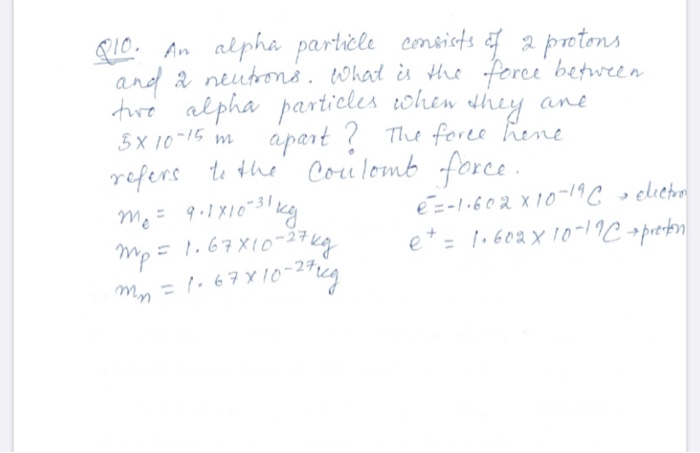 Q10. An alpha particle consists of 2 protons
and 2 neutrons. What is the force between
two alpha particles when they are
5 x 10-15 m apart? The force here
refers to the Coulomb force.
me = 9.1x10-31 kg e- = -1.602 x 10-19 C → electron
mp = 1.67x10-27 kg e+ = 1.602 x 10-19 C → proton
mn = 1.67x10-27 kg